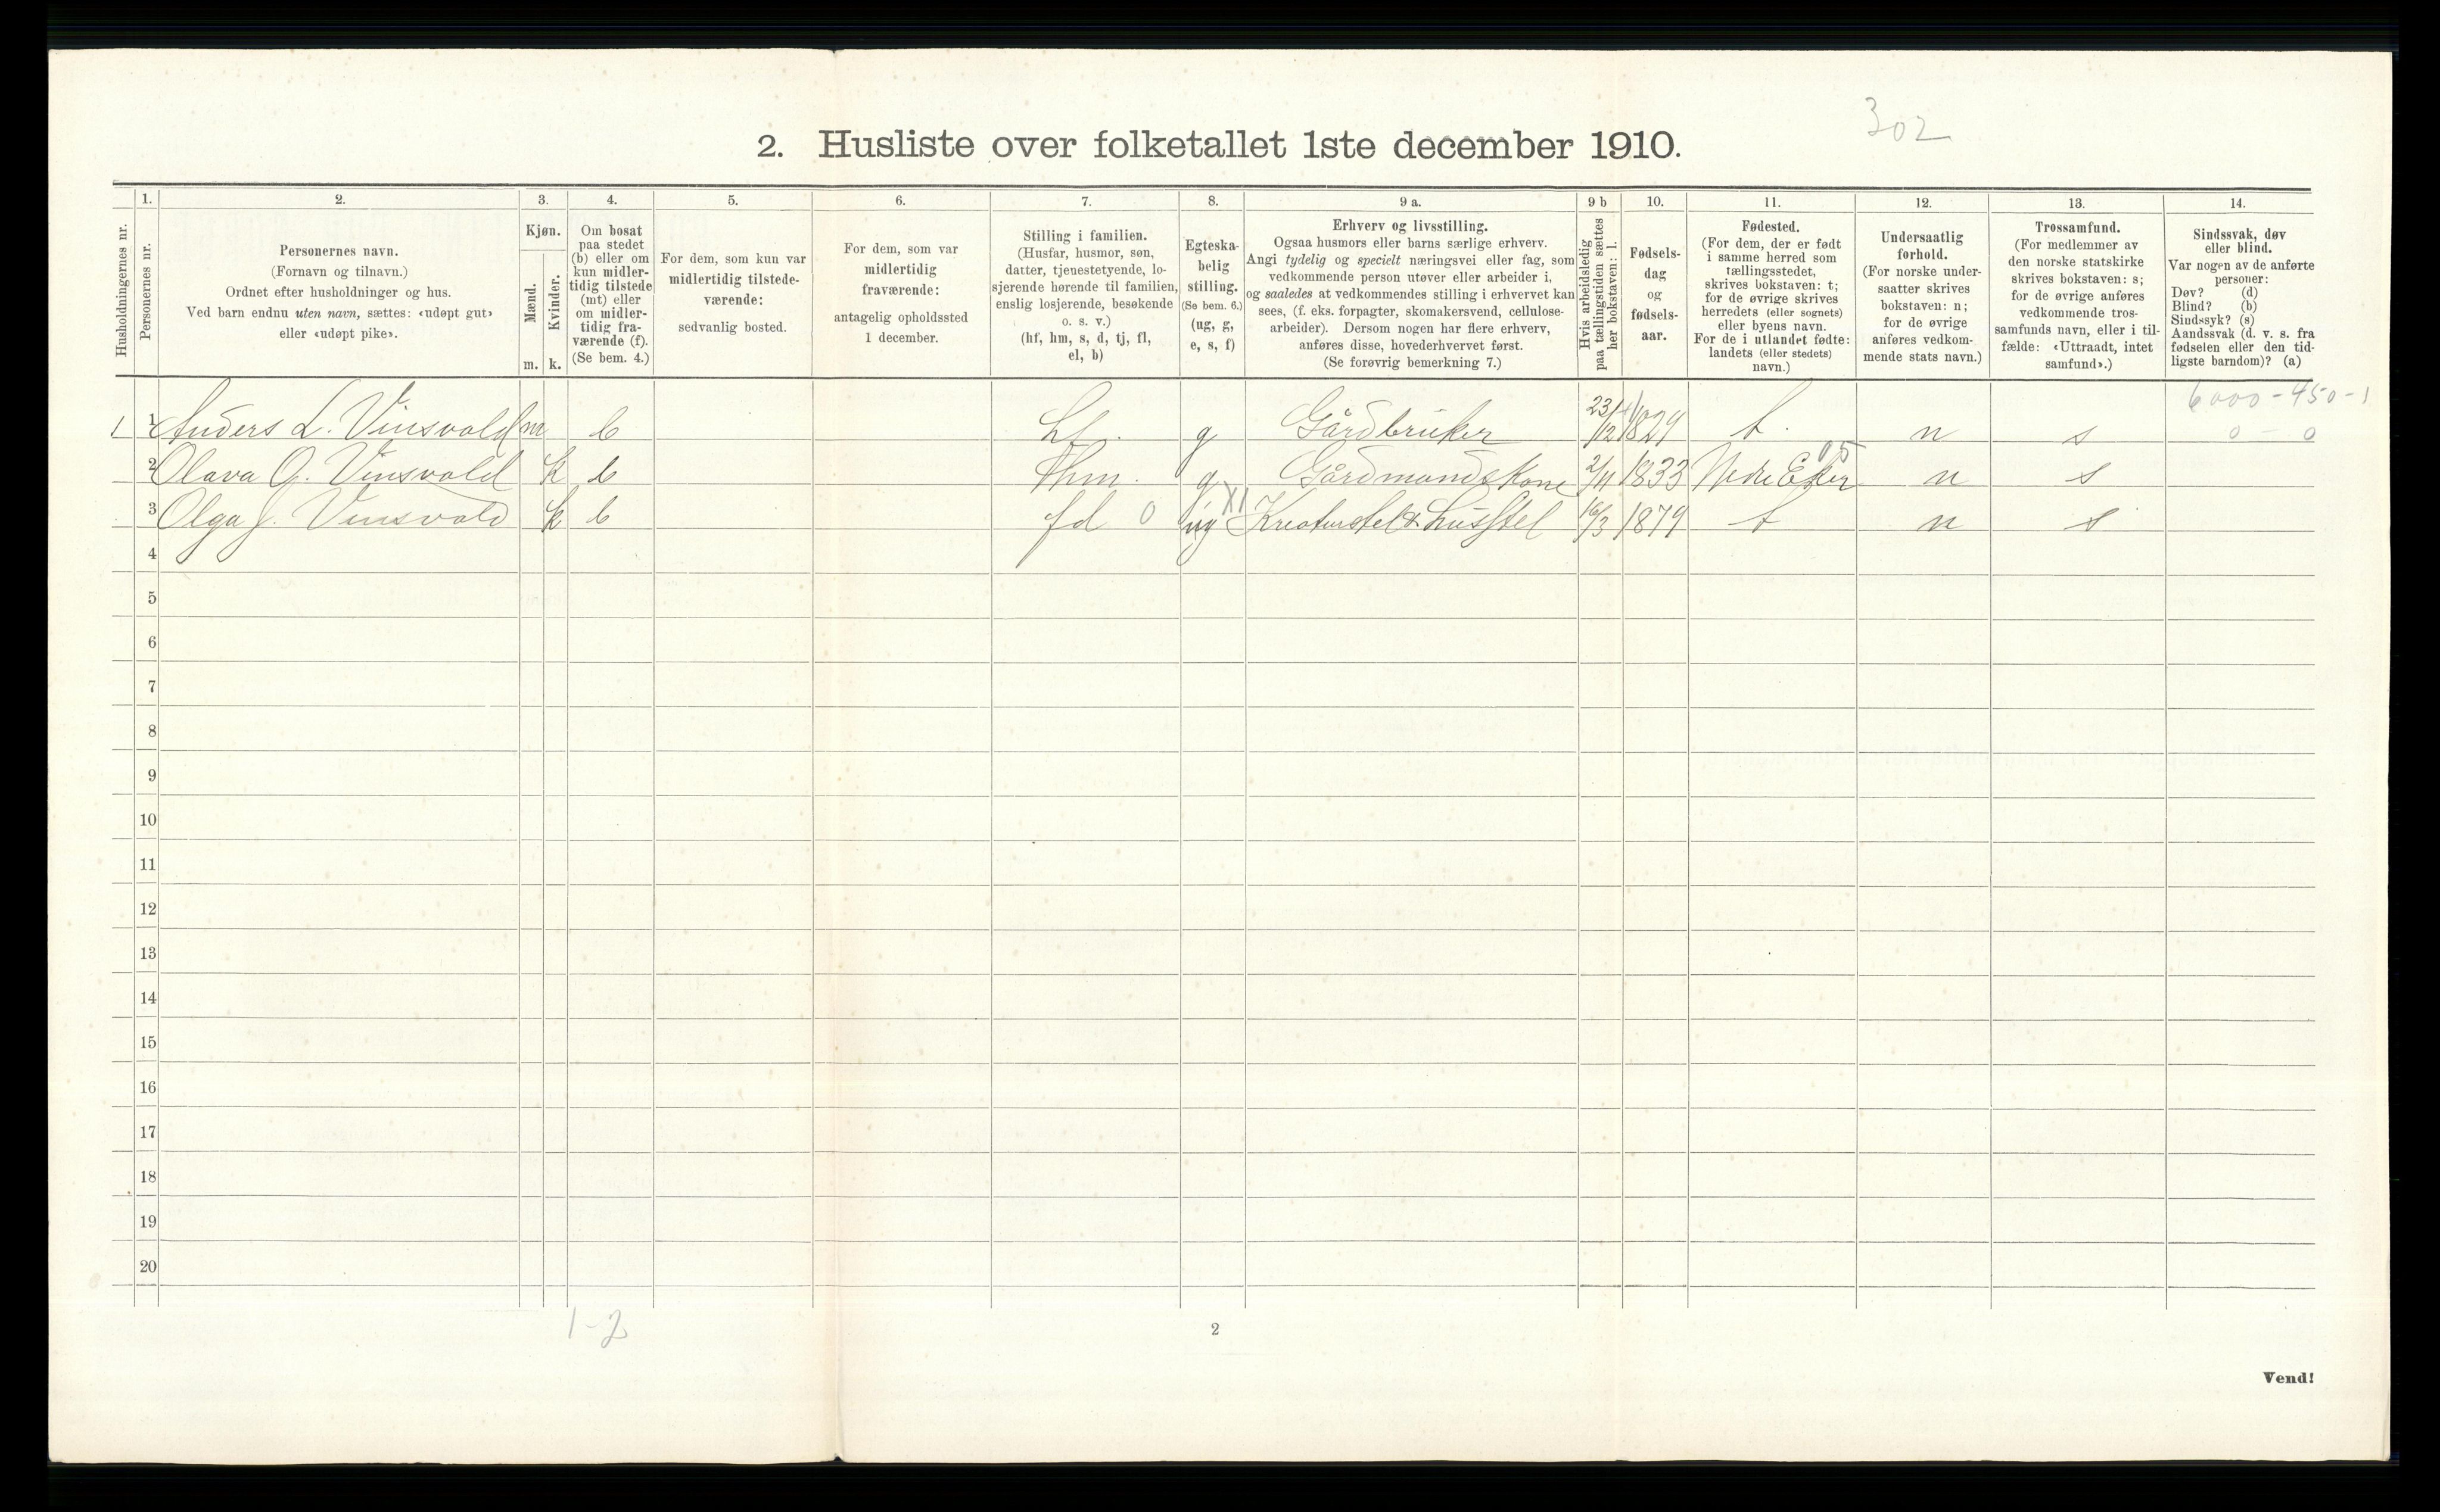 302
2. Husliste over folketallet 1ste december 1910.
Husholdningernes nr.
1.
Personernes nr.
2.
Personernes navn.
(Fornavn og tilnavn.)
Ordnet efter husholdninger og hus.
Ved barn endnu uten navn, sættes: «udøpt gut»
eller «udøpt pike».
3.
Kjøn.
Mænd.
Kvinder.
m. k.
4.
Om bosat
paa stedet
(b) eller om
kun midler-
tidig tilstede
(mt) eller
om midler-
tidig fra-
værende (f).
(Se bem. 4.)
5.
For dem, som kun var
midlertidig tilstede-
værende:
sedvanlig bosted.
6.
For dem, som var
midlertidig
fraværende:
antagelig opholdssted
1 december.
7.
Stilling i familien.
(Husfar, husmor, søn,
datter, tjenestetyende, lo-
sjerende hørende til familien,
enslig losjerende, besøkende
o. s. v.)
(hf, hm, s, d, tj, fl,
el, b)
8.
Egteska-
belig
stilling.
(Se bem. 6.)
(ug, g,
e, s, f)
9 a.
Erhverv og livsstilling.
Ogsaa husmors eller barns særlige erhverv.
Angi tydelig og specielt næringsvei eller fag, som
vedkommende person utøver eller arbeider i,
og saaledes at vedkommendes stilling i erhvervet kan
sees, (f. eks. forpagter, skomakersvend, cellulose-
arbeider). Dersom nogen har flere erhverv,
anføres disse, hovederhvervet først.
(Se forøvrig bemerkning 7.)
9 b
Hvis arbeidsledig
paa tællingstiden sættes
her bokstaven: l.
10.
Fødsels-
dag
og
fødsels-
aar.
11.
Fødested.
(For dem, der er født
i samme herred som
tællingsstedet,
skrives bokstaven: t;
for de øvrige skrives
herredets (eller sognets)
eller byens navn.
For de i utlandet fødte:
landets (eller stedets)
navn.)
12.
Undersaatlig
forhold.
(For norske under-
saatter skrives
bokstaven: n;
for de øvrige
anføres vedkom-
mende stats navn.)
13.
Trossamfund.
(For medlemmer av
den norske statskirke
skrives bokstaven: s;
for de øvrige anføres
vedkommende tros-
samfunds navn, eller i til-
fælde: «Uttraadt, intet
samfund».)
14.
Sindssvak, døv
eller blind.
Var nogen av de anførte
personer:
Døv? (d)
Blind? (b)
Sindssyk? (s)
Aandssvak (d. v. s. fra
fødselen eller den tid-
ligste barndom)? (a)
6000-450-1
1 1 Anders L. Vinsvold m b hf. g Gårdbruker 1829 t. n s 0 - 0
2 Olava G. Vinsvold k b hm. g Gårdmandskone 2/11 1833 Nedre Eker n s
3 Olga J. Vinsvold k b fd 0 ug XI Kreaturstel & husstel 16/3 1879 t n s
4
5
6
7
8
9
10
11
12
13
14
15
16
17
18
19
20
1-2
2
Vend!